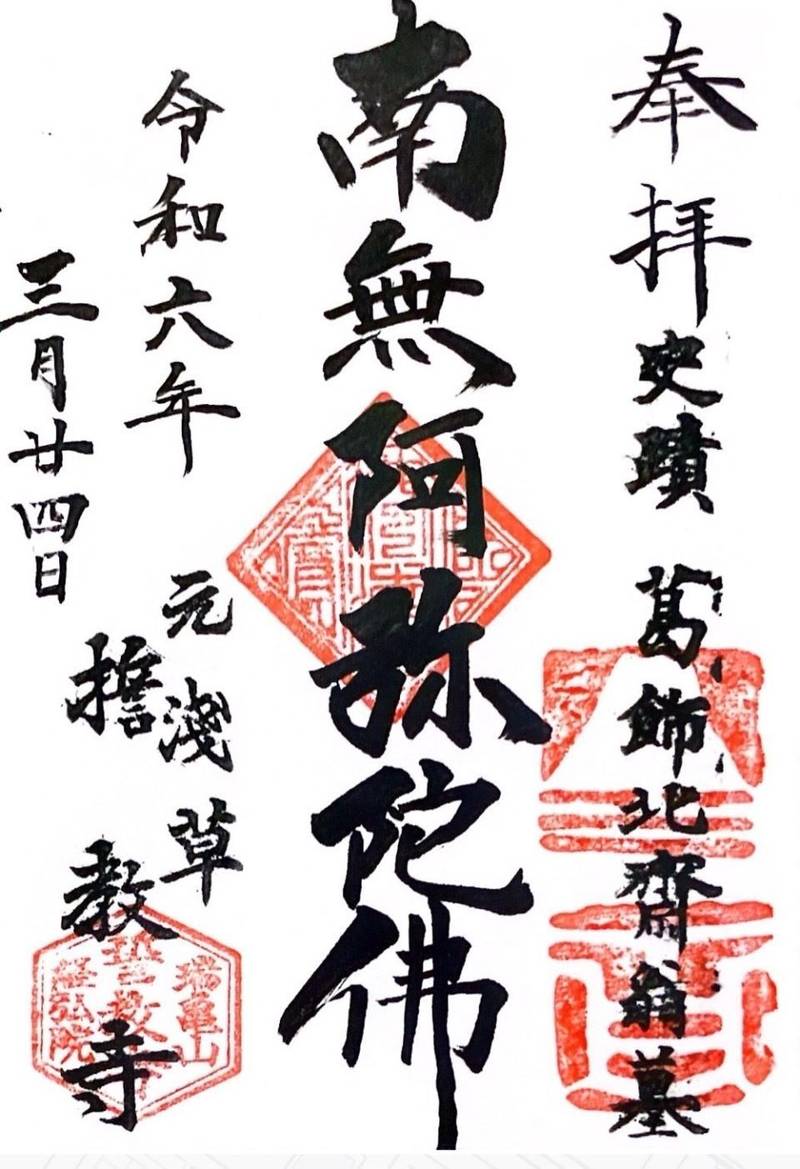 奉拝 史蹟 葛飾北齋翁墓
南無阿弥陀佛
令和六年
三月廿四日
元淺草
誓教寺
瑞亀山
誓教寺